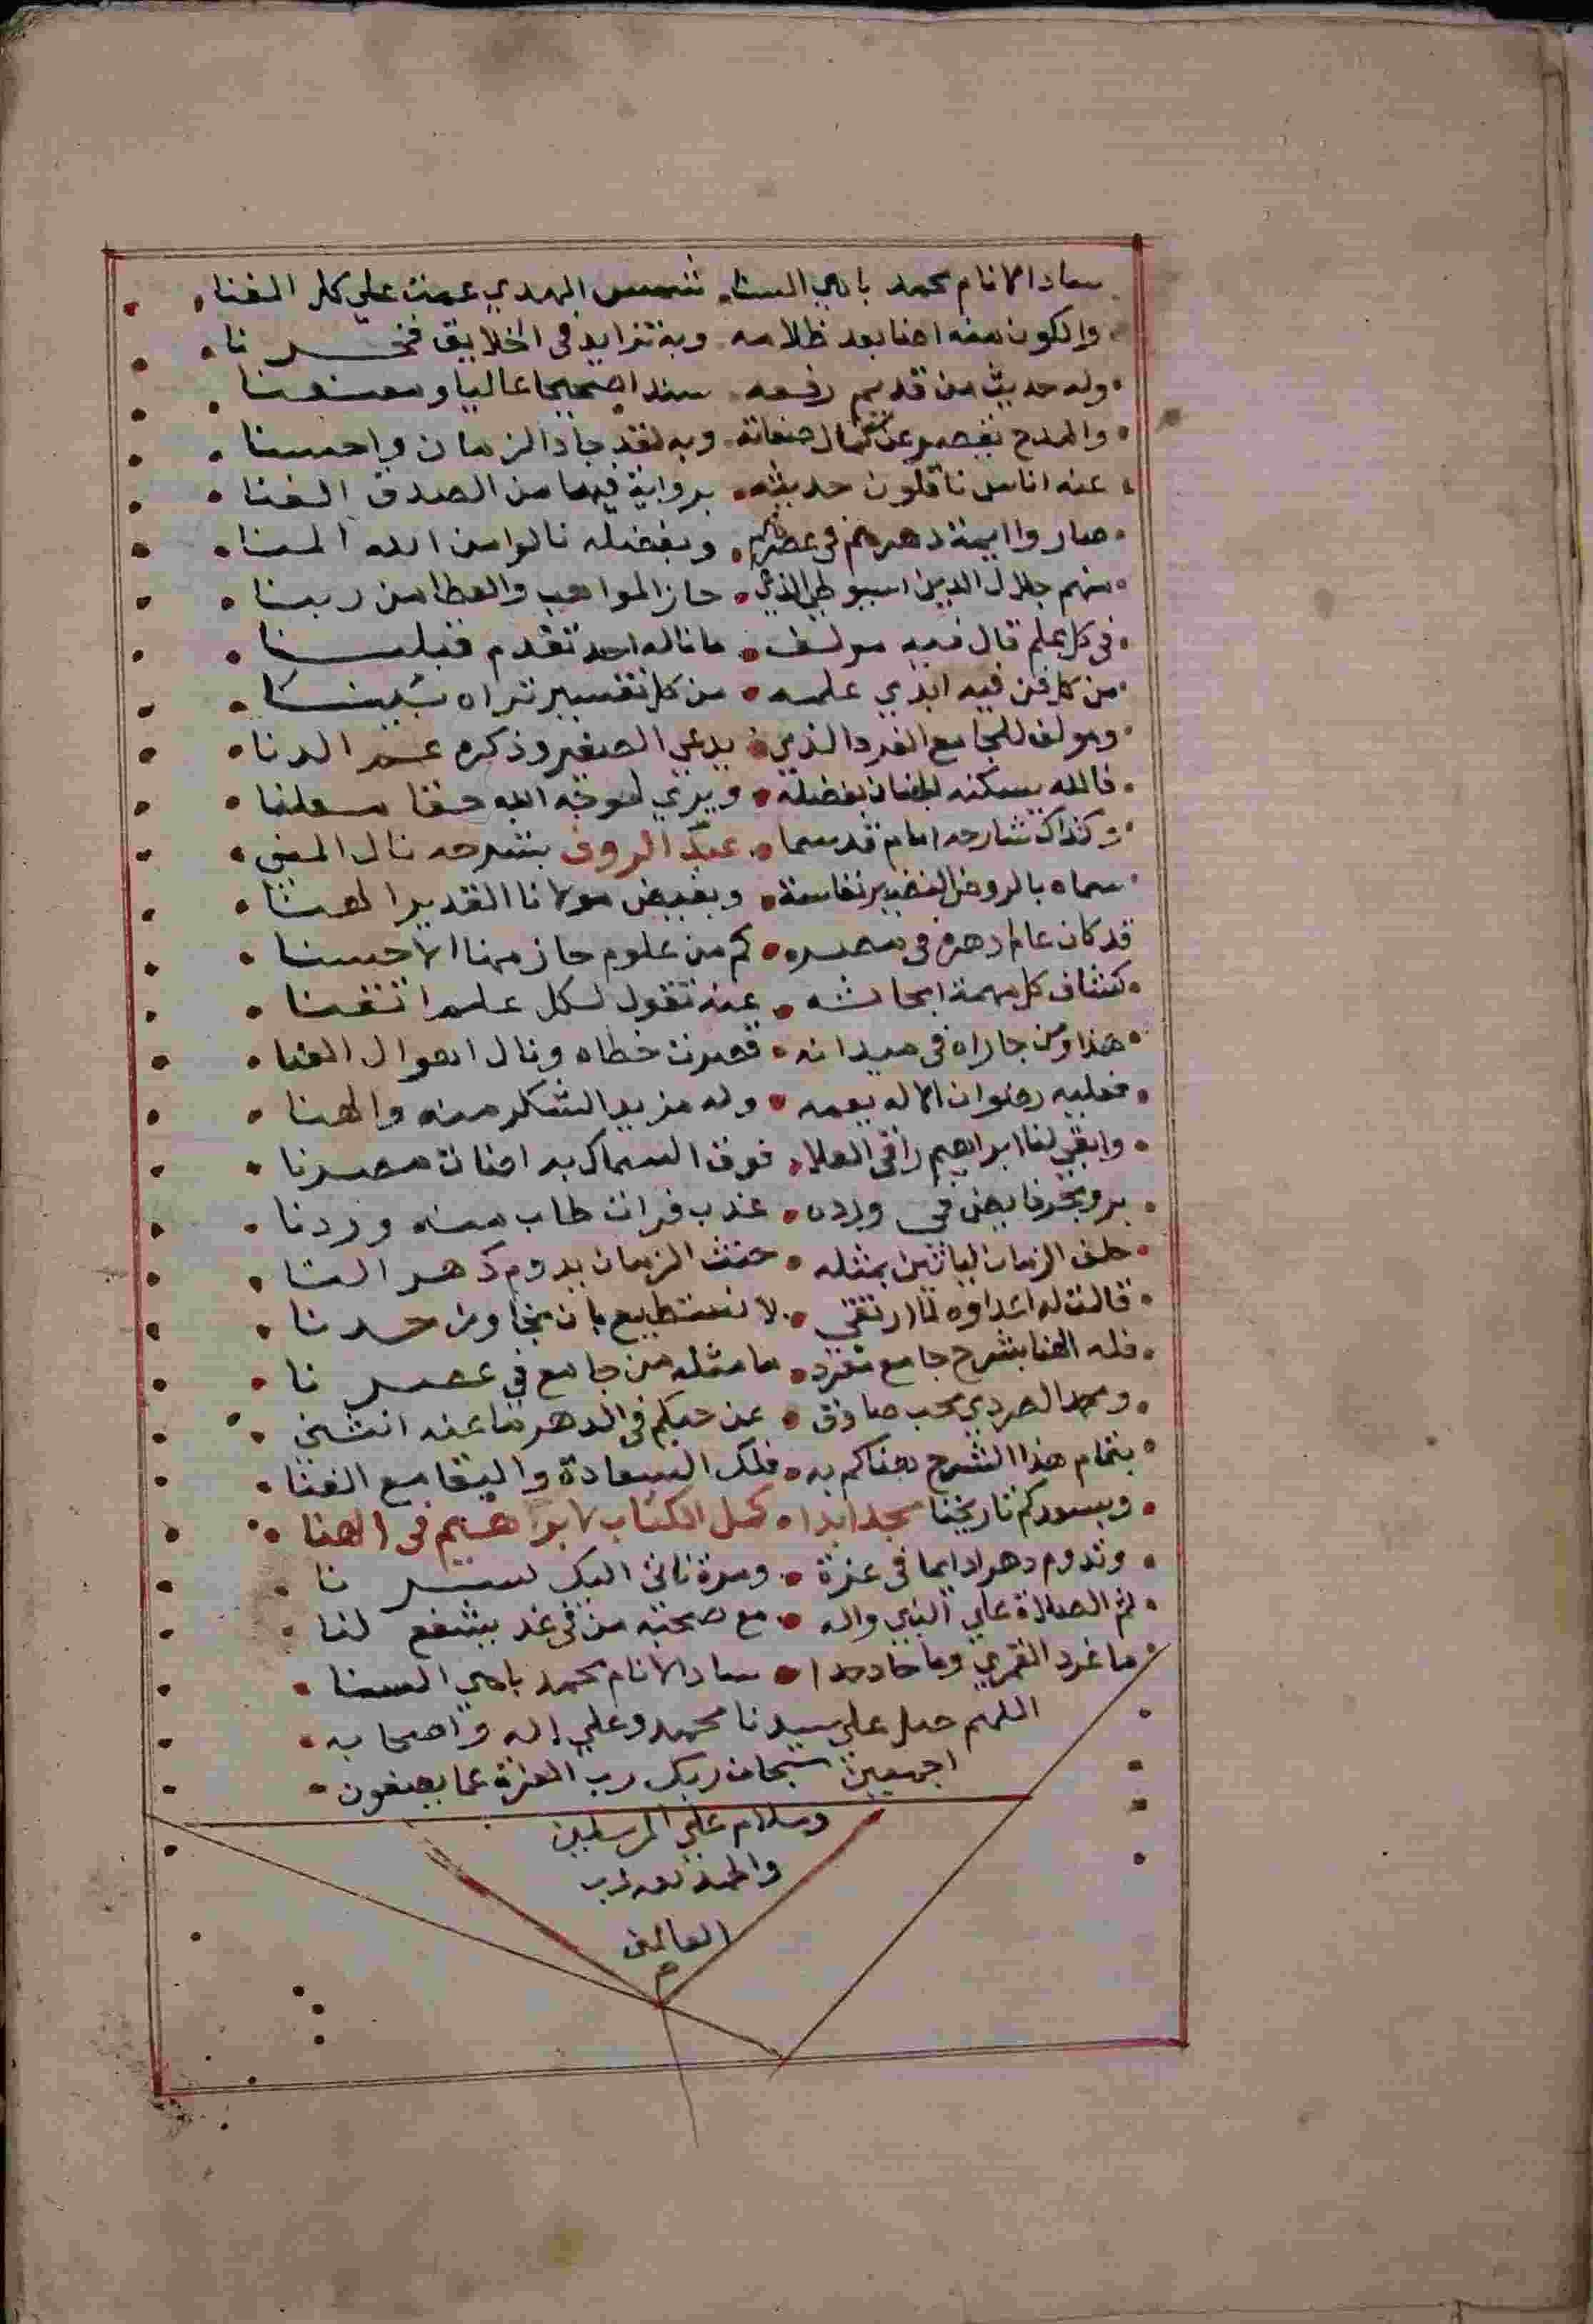 ساد الانام محمد باهي السنا شمس الهدي عمت علي كل الفنا
والكون منه اضا بعد ظلامه وبه تزايد في الخلايق فخرنا
وله حديث من قديم رفعه سندا صحيحا عاليا ومعنعنا
والمدح يقصر عن كمال صفاته وبه لقد جاد الزمان واحسنا
عنه اناس ناقلون حديثه برواية فيها من الصدق الغنا
صاروا ايمة دهرهم في عصرهم وبفضله نالوا من الله المنا
منهم جلال الدين اسيوطي الذي حاز المواهب والعطا من ربنا
في كل علم قال فيه مولف ما ناله احد تقدم قبلنا
من كل فن فيه ابدي علمه من كل تفسير تراه بينا
ومولف للجامع الفرد الذي يدعي الصغير وذكره عم الدنا
فالله يسكنه الجنان بفضله ويري لوجه الله حقا معلنا
وكذاك شارحه امام قد سما عبد الروف بشرحه نال المني
سماه بالروض النضير نفاسة وبفيض مولانا القدير الهنا
قد كان عالم دهره في مصره كم من علوم حاز منها الاحسنا
كشاف كل مهمة ابحاثه عنه تقول لكل علم اتقنا
هذا ومن جاراه في ميدانه قصرت خطاه ونال اهوال العنا
فعليه رضوان الاله يعمه وله مزيد الشكر منه والهنا
وابقي لنا ابراهيم راقي العلا فوق السماك به اضات مصرنا
عذب فرات طاب منه وردنا
حلف الزمان لياتين بمثله حنث الزمان يدوم دهر
قالت له اعداوه لما ارتقي لا نستطيع بان نجاوز حدنا
فله الهنا بشرح جامع مفرد ما مثله من جامع في عصرنا
ومحمد محب صادق عن حبكم في الدهر ما عنه انثني
بتمام هذا الشرح هناكم به فلك السعادة والبقا مع الغنا
تاريخنا مجد ابدا كمل الكتاب لابراهيم في الهنا
وتدوم دهرا دايما في عزة ومسرة تاتي اليك لسرنا
ثم الصلاة علي النبي واله مع صحبه من في غد يشفع لنا
ما غرد القمري وما حاد حدا ساد الانام محمد باهي السنا
اللهم صل علي سيدنا محمد وعلي اله واصحابه
اجمعين سبحان ربك رب العزة عما يصفون
وسلام علي المرسلين
والحمد لله رب
العالمين
م